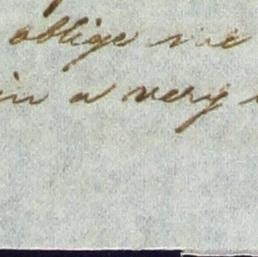 oblige me
in a very